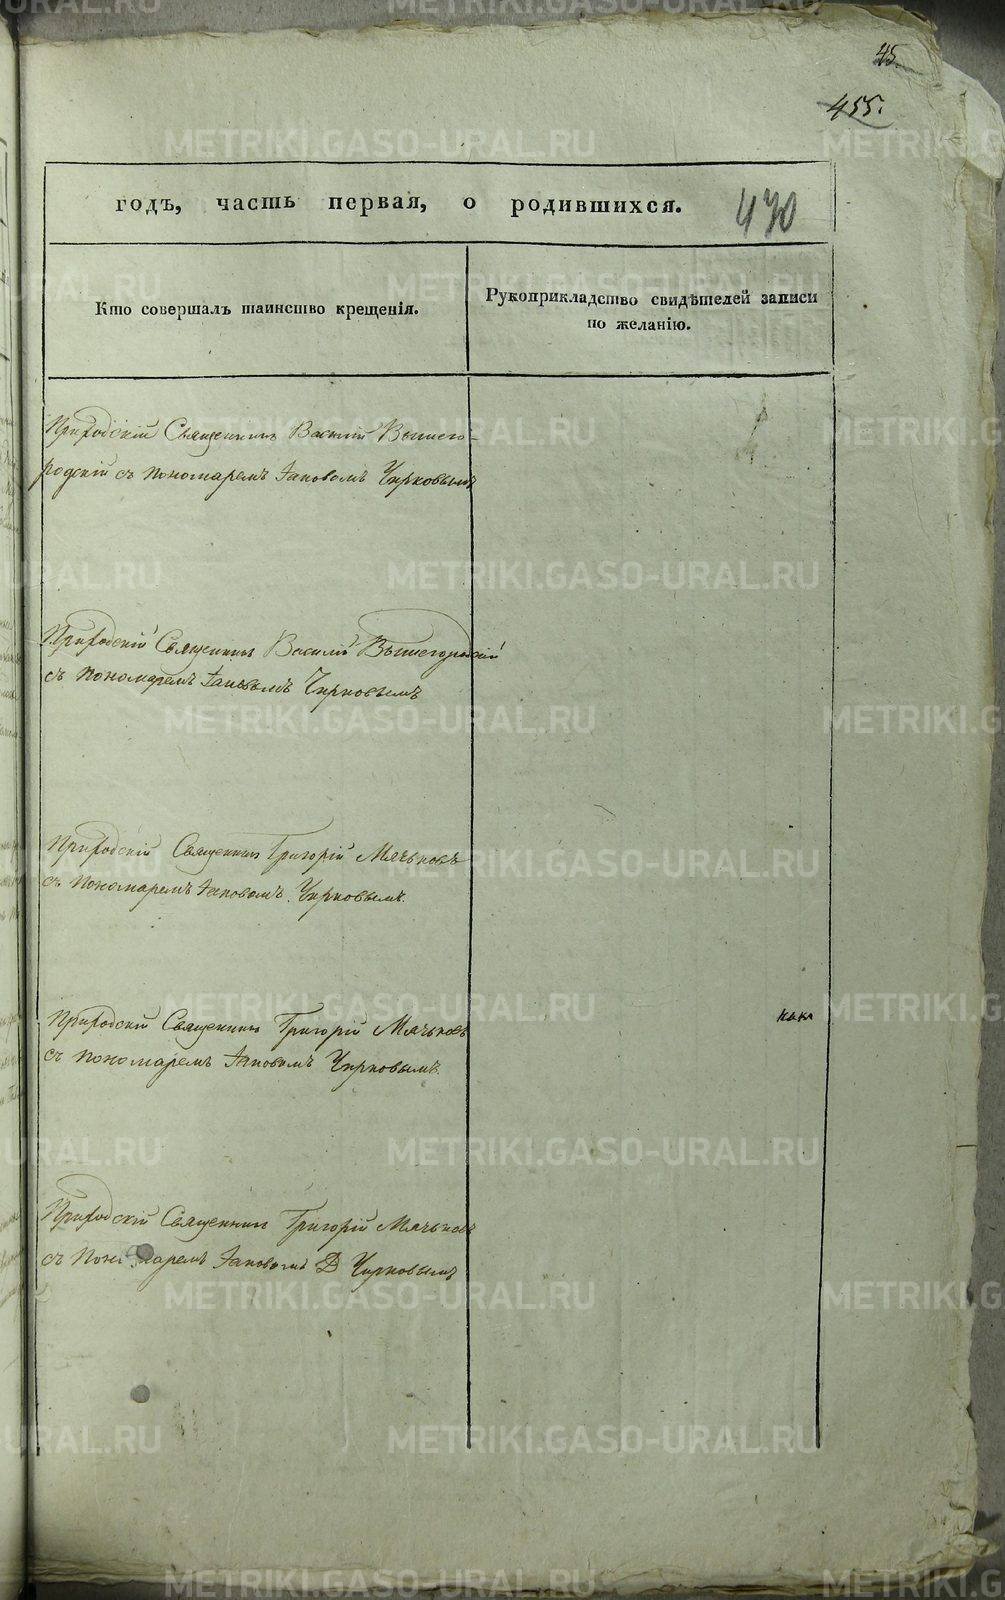 45.
455.
годъ, часть первая, о родившихся.
470
Кто совершалъ таинство крещенія.
Рукоприкладство свидѣтелей записи
по желанію.
Приходскій Священникъ Василій Вышего-
родскій съ пономаремъ Іаковомъ Чирковымъ
Приходскій Священникъ Василій Вышегородскій
съ пономаремъ Іаковымъ Чирковымъ
Приходскій Священникъ Григорій Мячьковъ
съ пономаремъ Іаковомъ Чирковымъ.
Приходскій Священникъ Григорій Мячьковъ
съ пономаремъ Іаковомъ Чирковымъ.
Приходскій Священникъ Григорій Мячьковъ
съ Пономаремъ Іаковомъ Чирковымъ
METRIKI.GASO-URAL.RU